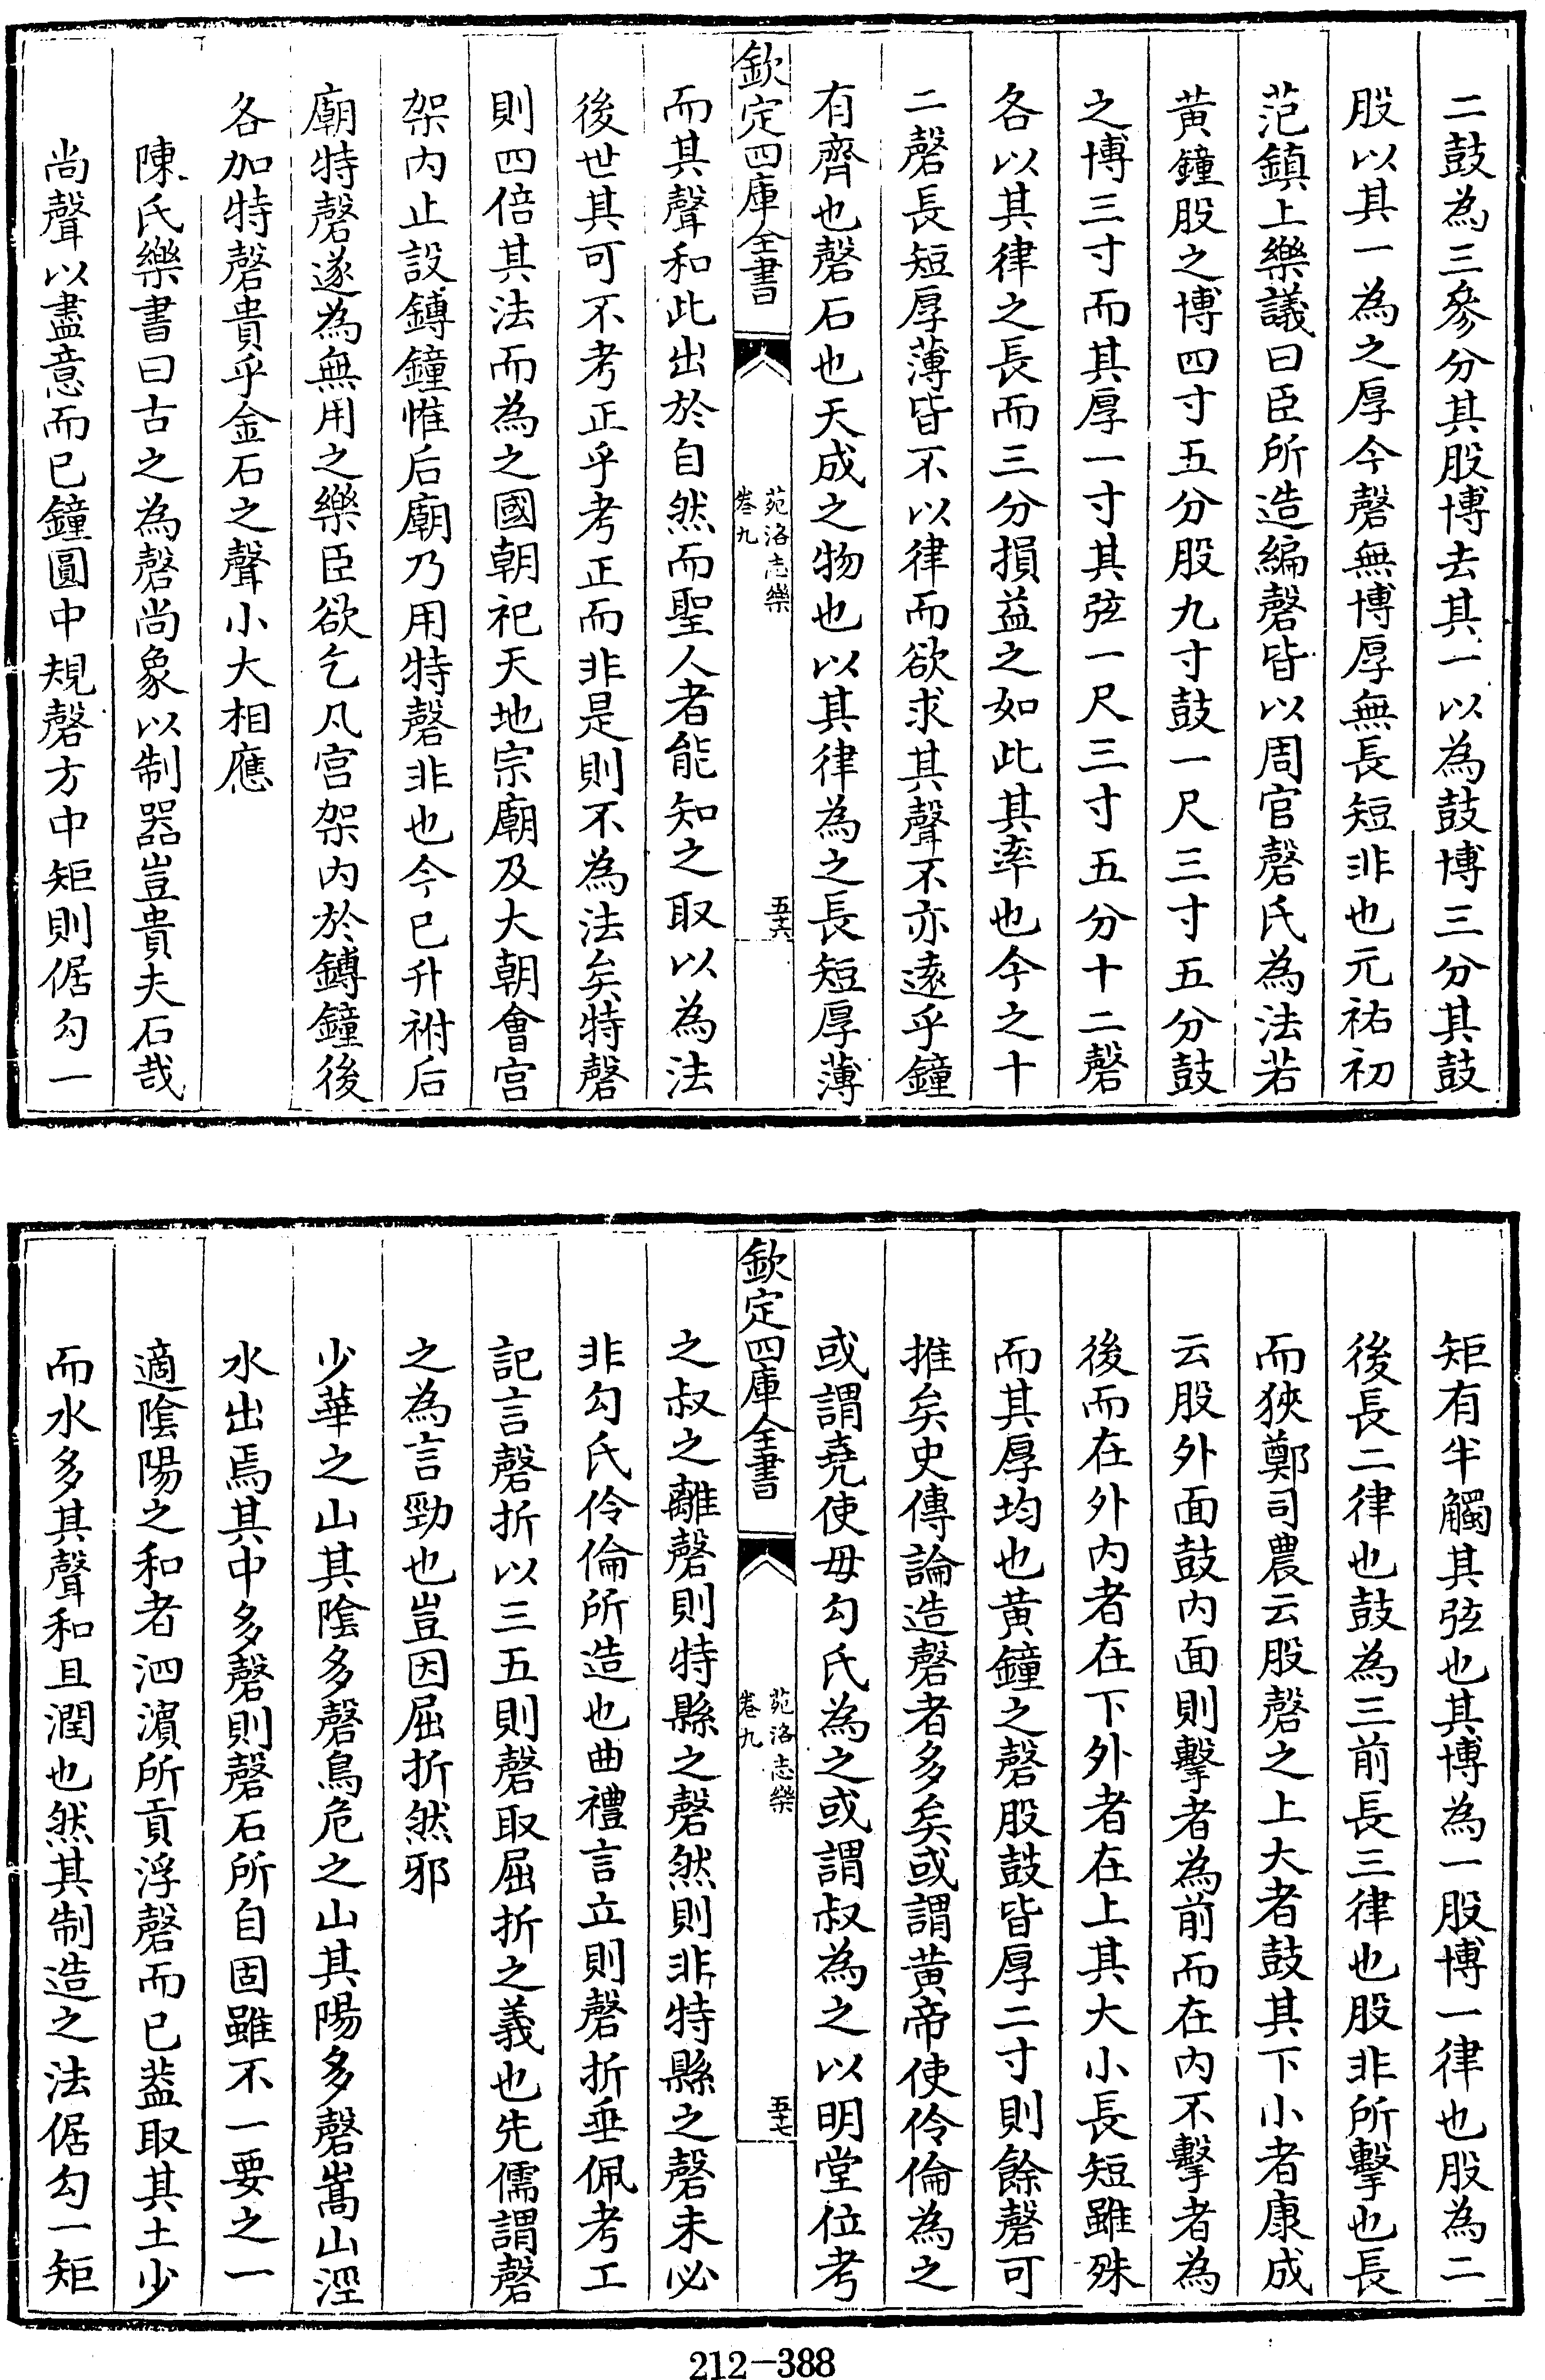 二鼓為三參分其股博去其一以為鼓博三分其鼓
股以其一為之厚今磬無博厚無長短非也元祐初
范鎮上樂議曰臣所造編磬皆以周官磬氏為法若
黃鐘股之博四寸五分股九寸鼓一尺三寸五分鼓
之博三寸而其厚一寸其弦一尺三寸五分十二磬
各以其律之長而三分損益之如此其率也今之十
二磬長短厚薄皆不以律而欲求其聲不亦遠乎鐘
有齊也磬石也天成之物也以其律為之長短厚薄
欽定四庫全書
苑洛志樂
卷九
五十六
而其聲和此出於自然而聖人者能知之取以為法
後世其可不考正乎考正而非是則不為法矣特磬
則四倍其法而為之國朝祀天地宗廟及大朝會宮
架内止設鎛鐘惟后廟乃用特磬非也今已升祔后
廟特磬遂為無用之樂臣欲乞凡宮架内於鎛鐘後
各加特磬貴乎金石之聲小大相應
陳氏樂書曰古之為磬尚象以制器豈貴夫石哉
尚聲以盡意而已鐘圓中規磬方中矩則倨勾一
矩有半觸其弦也其博為一股博一律也股為二
後長二律也鼓為三前長三律也股非所擊也長
而狹鄭司農云股磬之上大者鼓其下小者康成
云股外面鼓内面則擊者為前而在内不擊者為
後而在外内者在下外者在上其大小長短雖殊
而其厚均也黃鐘之磬股鼓皆厚二寸則餘磬可
推矣史傳論造磬者多矣或謂黃帝使伶倫為之
或謂堯使毋勾氏為之或謂叔為之以明堂位考
欽定四庫全書
苑洛志樂
卷九
五十七
之叔之離磬則特縣之磬然則非特縣之磬未必
非勾氏伶倫所造也曲禮言立則磬折垂佩考工
記言磬折以三五則磬取屈折之義也先儒謂磬
之為言勁也豈因屈折然邪
少華之山其陰多磬鳥危之山其陽多磬嵩山涇
水出焉其中多磬則磬石所自固雖不一要之一
適陰陽之和者泗濱所貢浮磬而已葢取其土少
而水多其聲和且潤也然其制造之法倨勾一矩
212-388